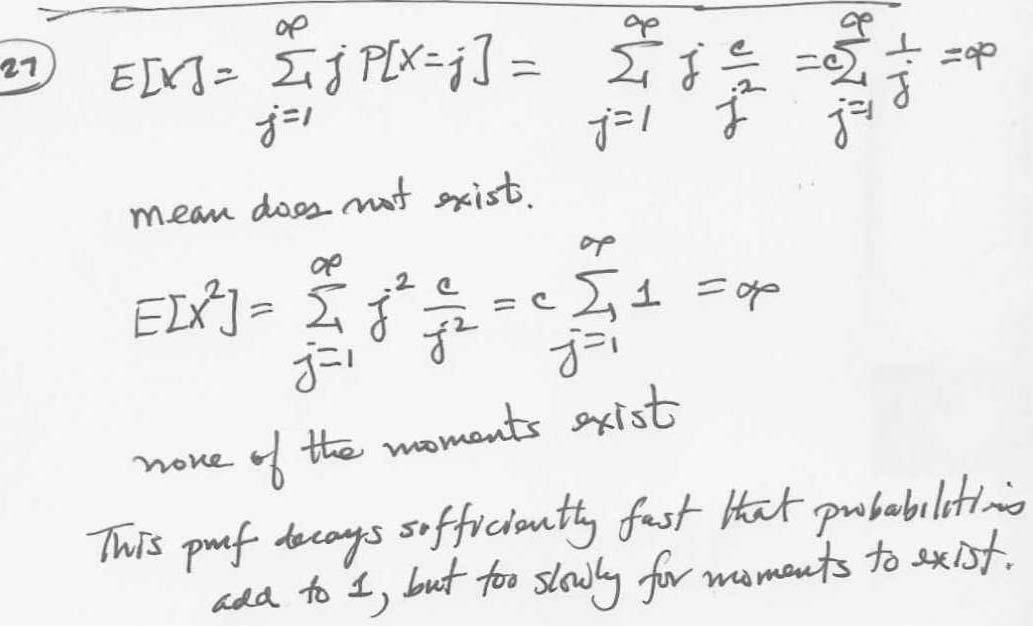 27 E[X] = ∞∑j=1 j P[X=j] = ∞∑j=1 j c/j² = c ∞∑j=1 1/j = ∞
mean does not exist.
E[X²] = ∞∑j=1 j² c/j² = c ∞∑j=1 1 = ∞
none of the moments exist
This pmf decays sufficiently fast that probabilities
add to 1, but too slowly for moments to exist.